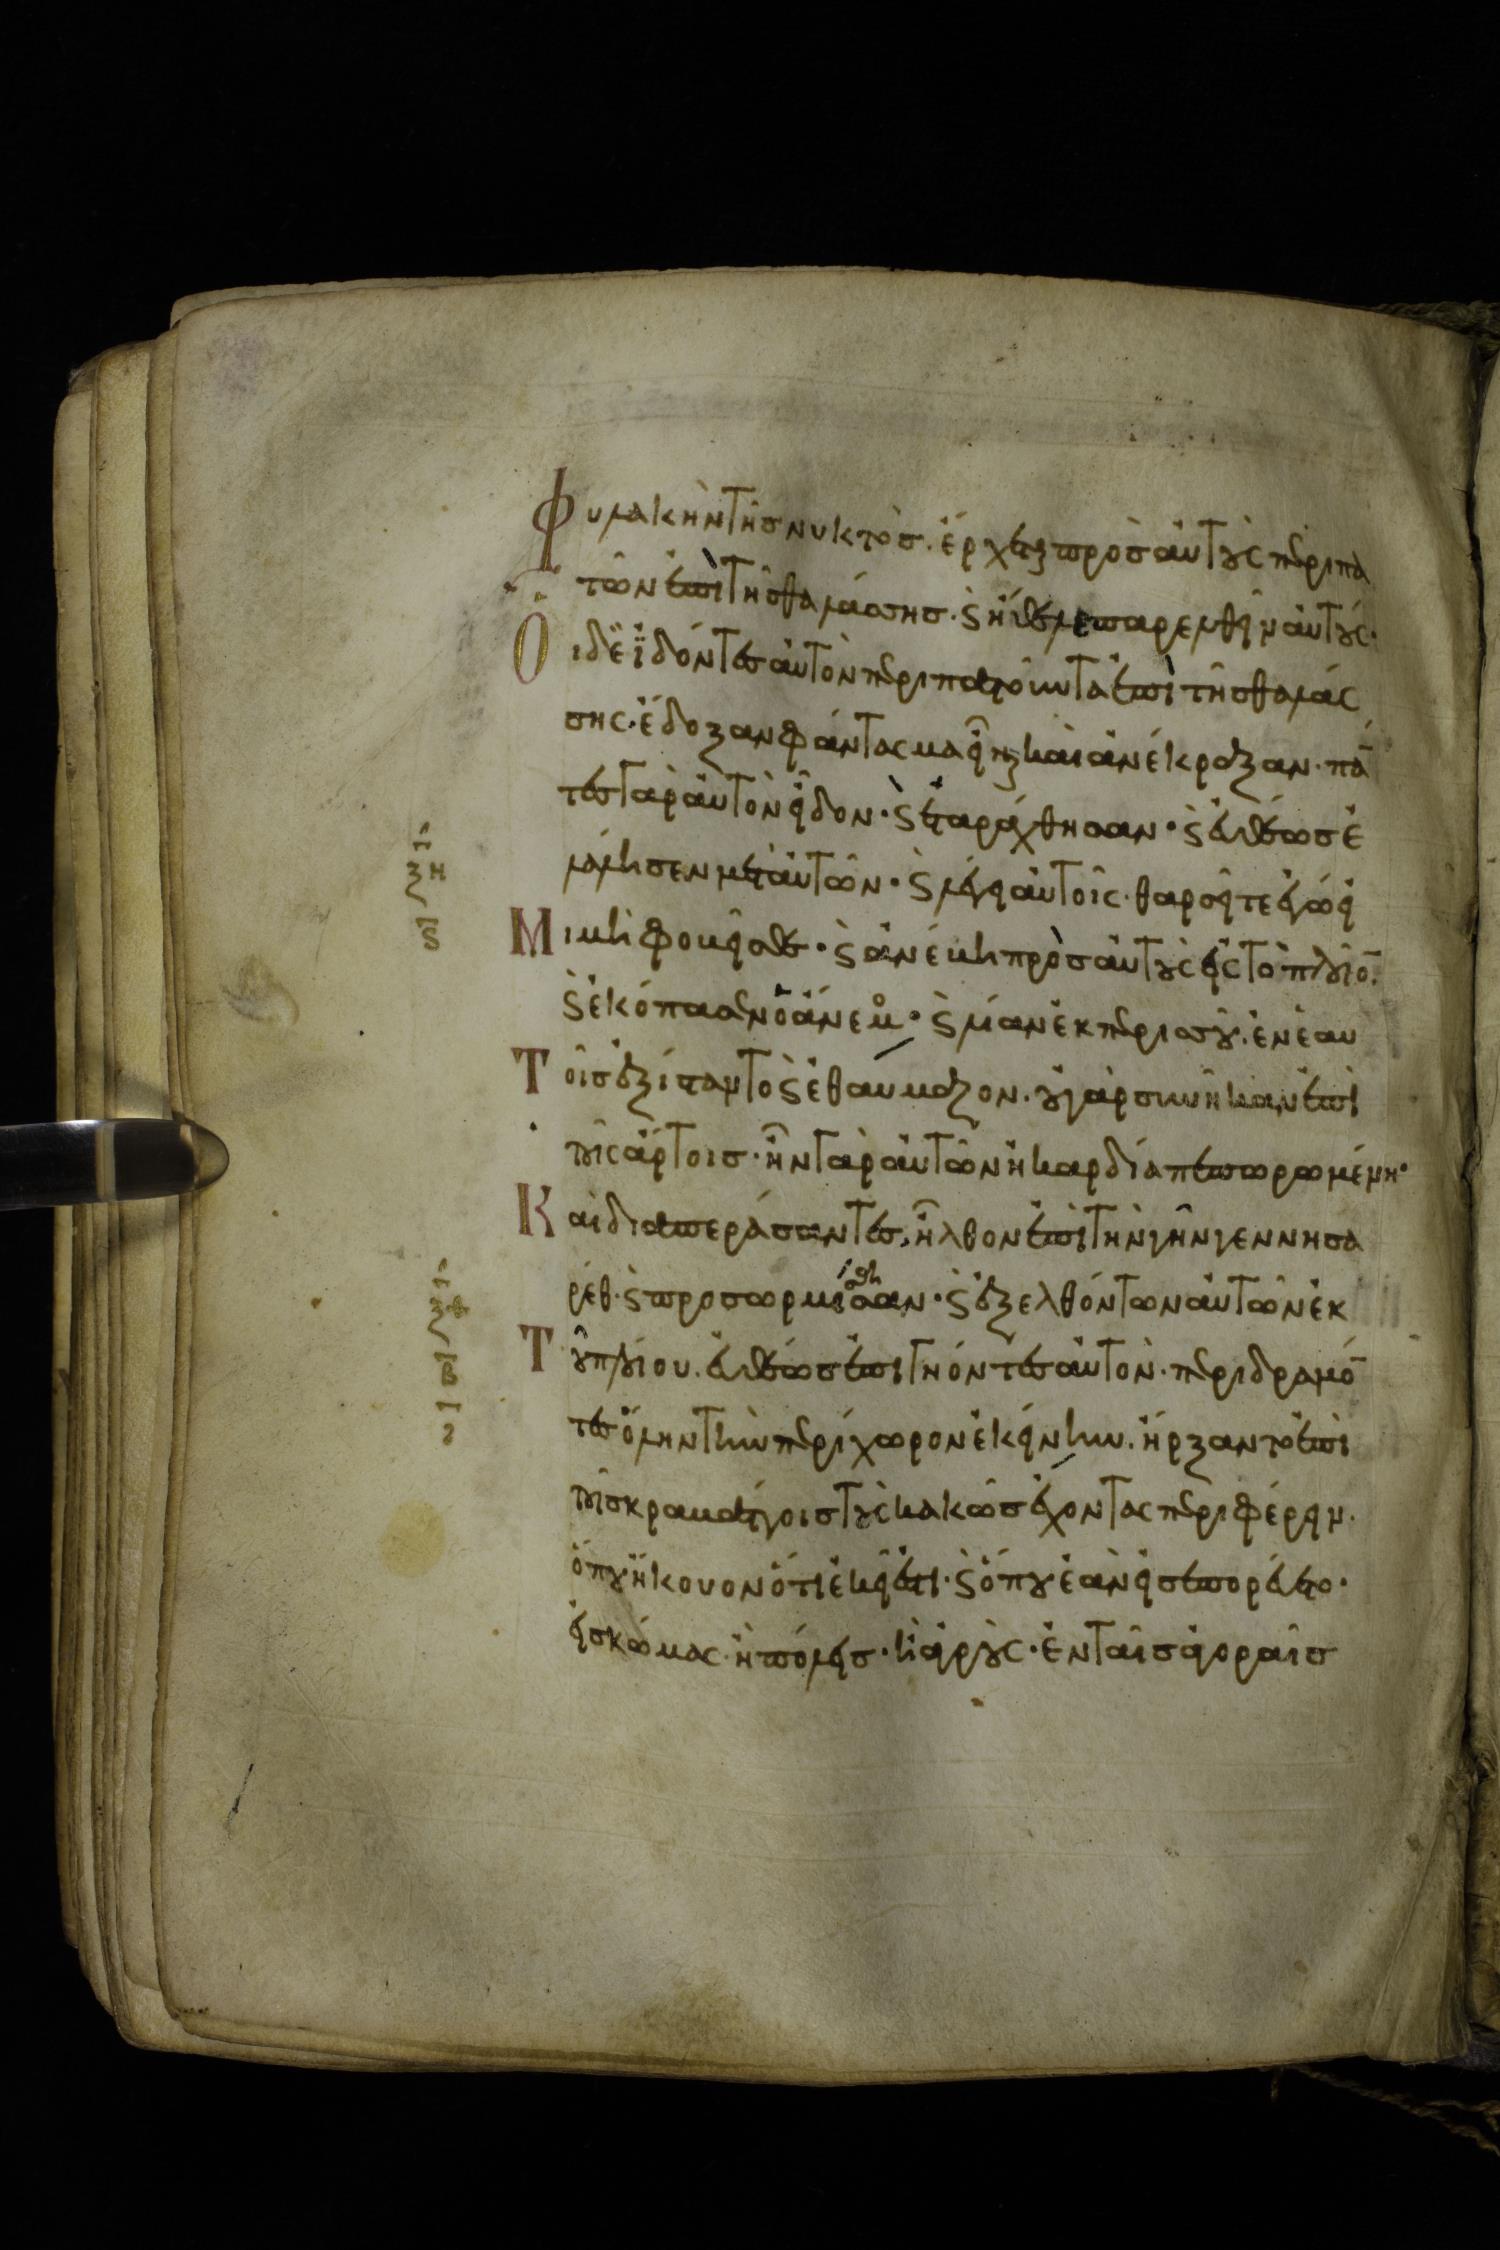 Φυλακὴν τῆς νυκτὸς. ἔρχεται πρὸς αὐτοὺς περιπα
τῶν ἐπὶ τῆς θαλάσσης· ϛ ἤθελε παρελθεῖν αὐτούς·
Οἱ δὲ ἰδόντες αὐτὸν περιπατοῦντα ἐπὶ τῆς θαλάσ
σης· ἔδοξαν φάντασμα εἶναι καὶ ἀνέκραξαν· πά̅
τες γὰρ αὐτὸν εἶδον· ϛ ἐταράχθησαν· ϛ εὐθέως ἐ
λάλησεν μετ αὐτῶν· ϛ λέγει αὐτοῖς· θαρσεῖτε ἐγώ εἰ
Μι μὴ φοβεῖσθε· ϛ ἀνέβη πρὸς αὐτοὺς εἰς τὸ πλοῖο̅.
ϛ ἐκόπασεν ὁ ἄνεμος· ϛ λίαν ἐκ περισσοῦ. ἐν ἑαυ
Τοῖς ἐξίσταντο ϛ ἐθαύμαζον. οὐ γὰρ συνῆκαν ἐπὶ
τοῖς ἄρτοις· ἦν γὰρ αὐτῶν ἡ καρδία πεπωρωμένη·
Καὶ διαπεράσαντες, ἦλθον ἐπὶ τὴν γῆν γεννησα
ρέθ· ϛ προσωρμίσθησαν· ϛ ἐξελθόντων αὐτῶν ἐκ
Τοῦ πλοίου. εὐθέως ἐπιγνόντες αὐτὸν· περιδραμό̅
τες ὅλην τὴν περίχωρον ἐκείνην. ἤρξαντο ἐπὶ
τοῖς κραβάττοις τοὺς κακῶς ἔχοντας περιφέρειν.
ὅπου ἤκουον ὅτι ἐκεῖ ἐστι· ϛ ὅπου ἐὰν εἰσεπορεύετο·
εἰς κώμας· ἢ πόλεις· ἢ ἀγρούς· ἐν ταῖς ἀγοραῖς
ξη
ϛ
ξθ
β